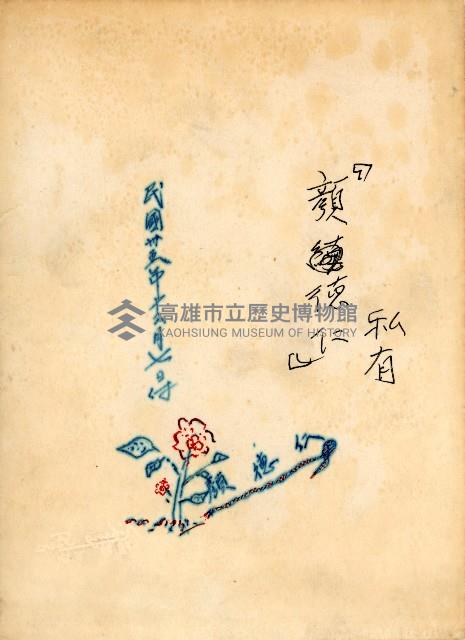 『顏德
私有
民國卅五年十二月七日付
高雄市立歷史博物館
KAOHSIUNG MUSEUM OF HISTORY
顏德